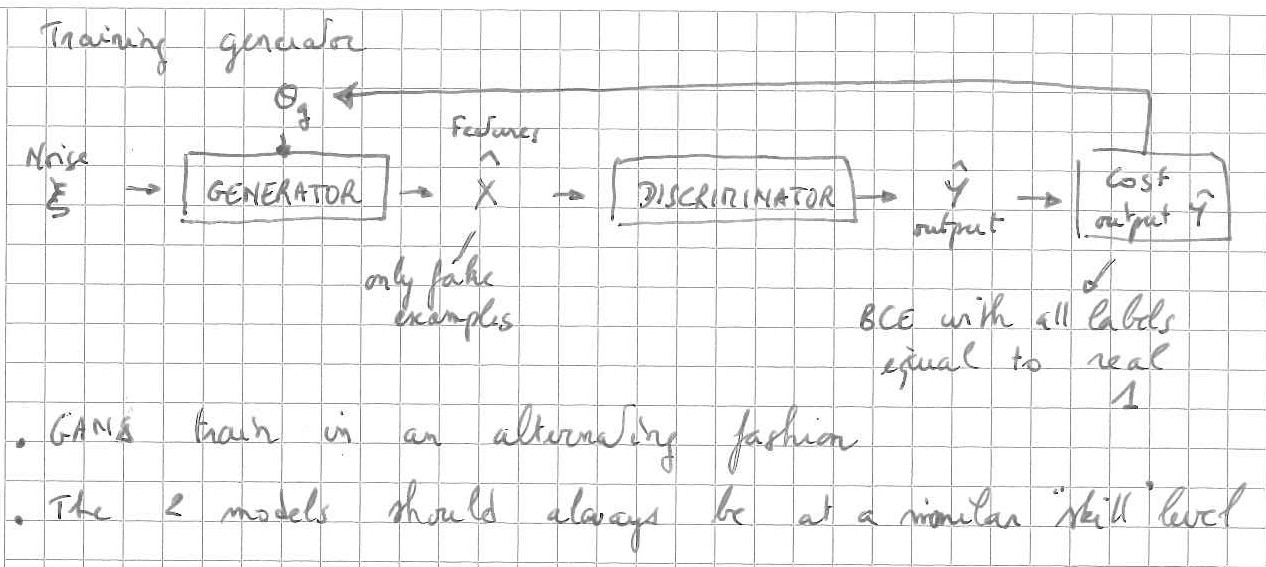 Training generator
θg
Features
Noise
ξ → GENERATOR → X̂ → DISCRIMINATOR → Ŷ → Cost
output
output Ŷ
only fake
examples
BCE with all labels
equal to real
1
. GANs train in an alternating fashion
. The 2 models should always be at a similar "skill" level